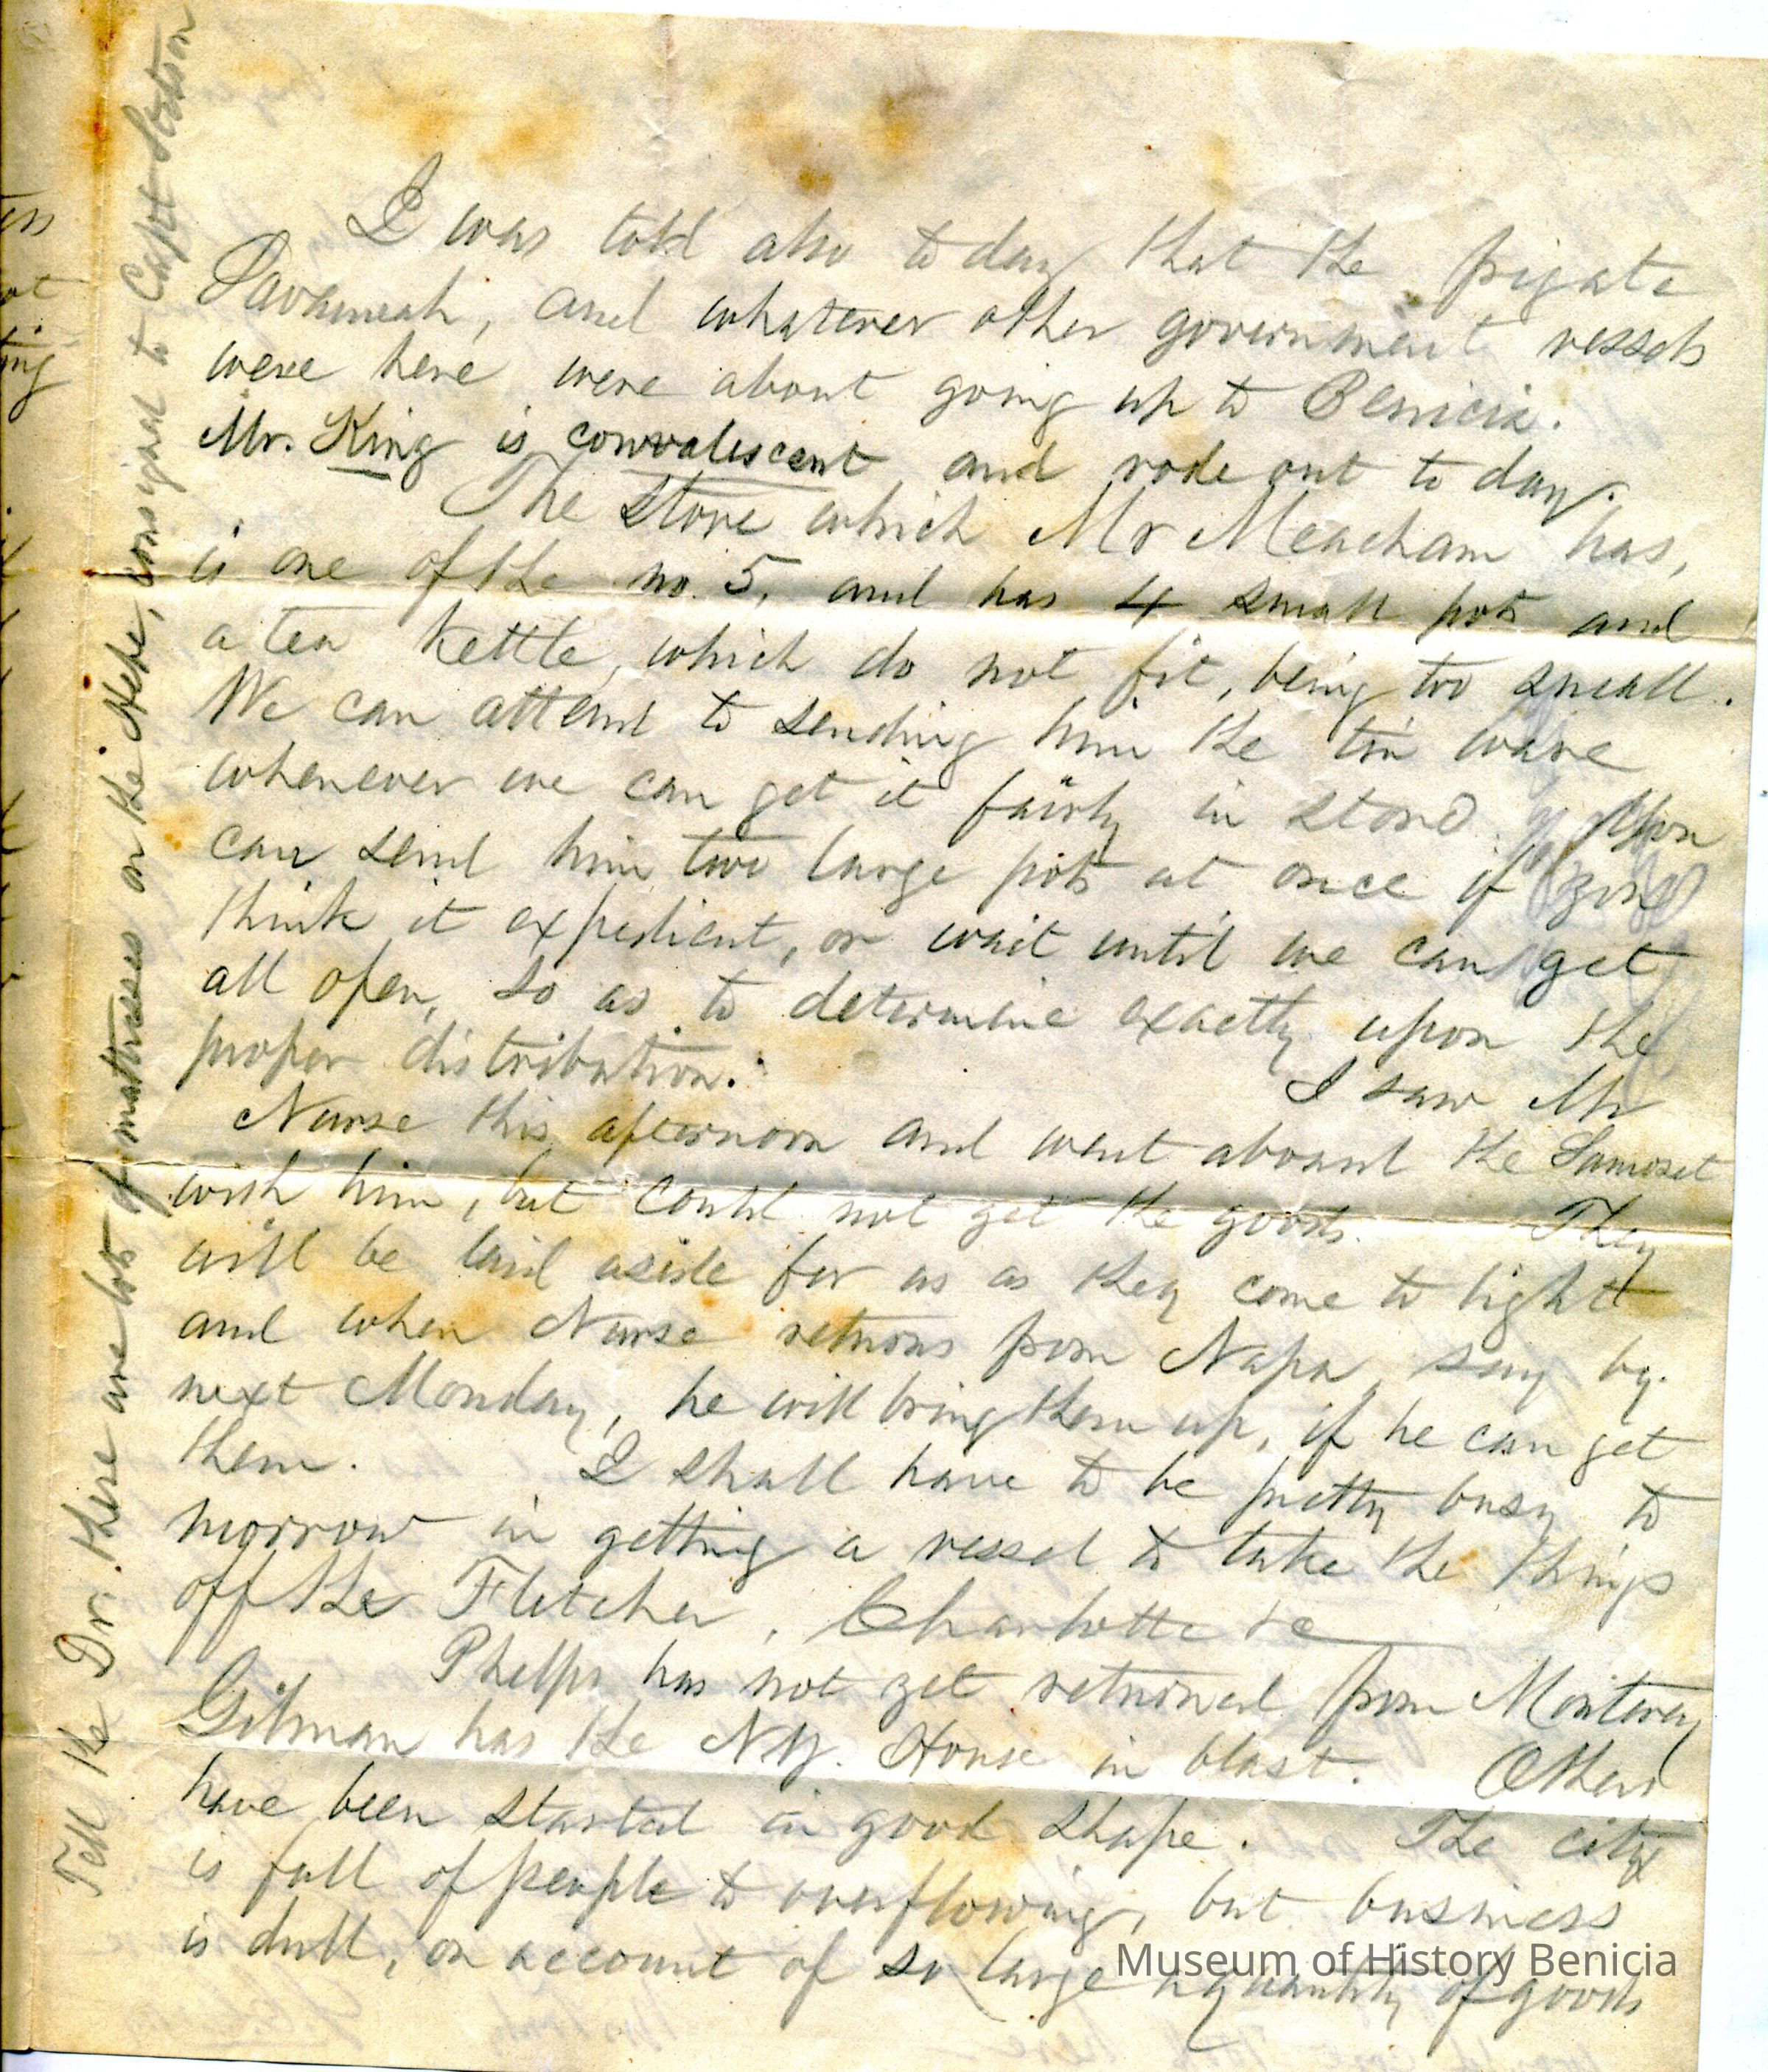 I was told also to day that the frigate
Savannah, and whatever other government vessels
were here were about going up to Benicia.
Mr. King is convalescent and rode out to day.
The stove which Mr Meacham has,
is one of the no. 5, and has 4 small pots and
a tea kettle, which do not fit, being too small.
We can attend to sending him the tin ware
whenever we can get it fairly in store. You
can send him two large pots at once if you
think it expedient, or wait until we can get
all open, so as to determine exactly upon the
proper distribution. I saw Mr
Nurse this afternoon and went aboard the Samoset
with him, but could not get the goods. They
will be laid aside for us as they come to light
and when Nurse returns from Napa, say by
next Monday, he will bring them up, if he can get
them. I shall have to be pretty busy to
morrow in getting a vessel to take the things
off the Fletcher, Charlotte &c
Phelps has not yet returned from Monterey
Gilman has the N.Y. House in blast. Others
have been started in good shape. The city
is full of people to overflowing, but business
is dull, on account of so large a quantity of goods
Tell the Dr. there are lots of mattresses on the Hebe, consigned to Capt
ess
ot
ting
Museum of History Benicia